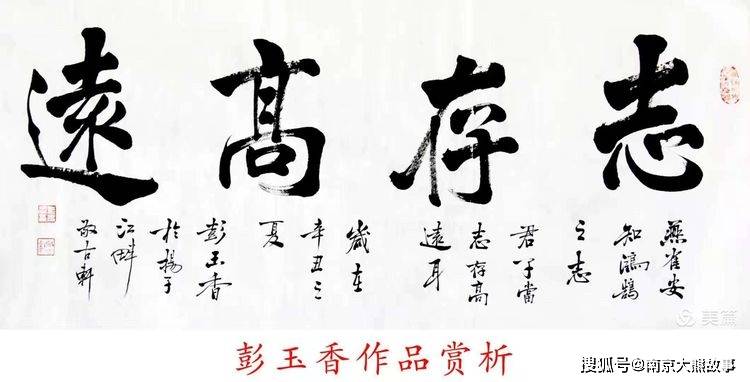 志存高遠
燕雀安
知鴻鵠
之志
君子當
志存高
遠耳
歲在
辛丑之
夏
彭玉香
於揚子
江畔
古軒
美篇
彭玉香作品赏析
搜狐号@南京大熊故事